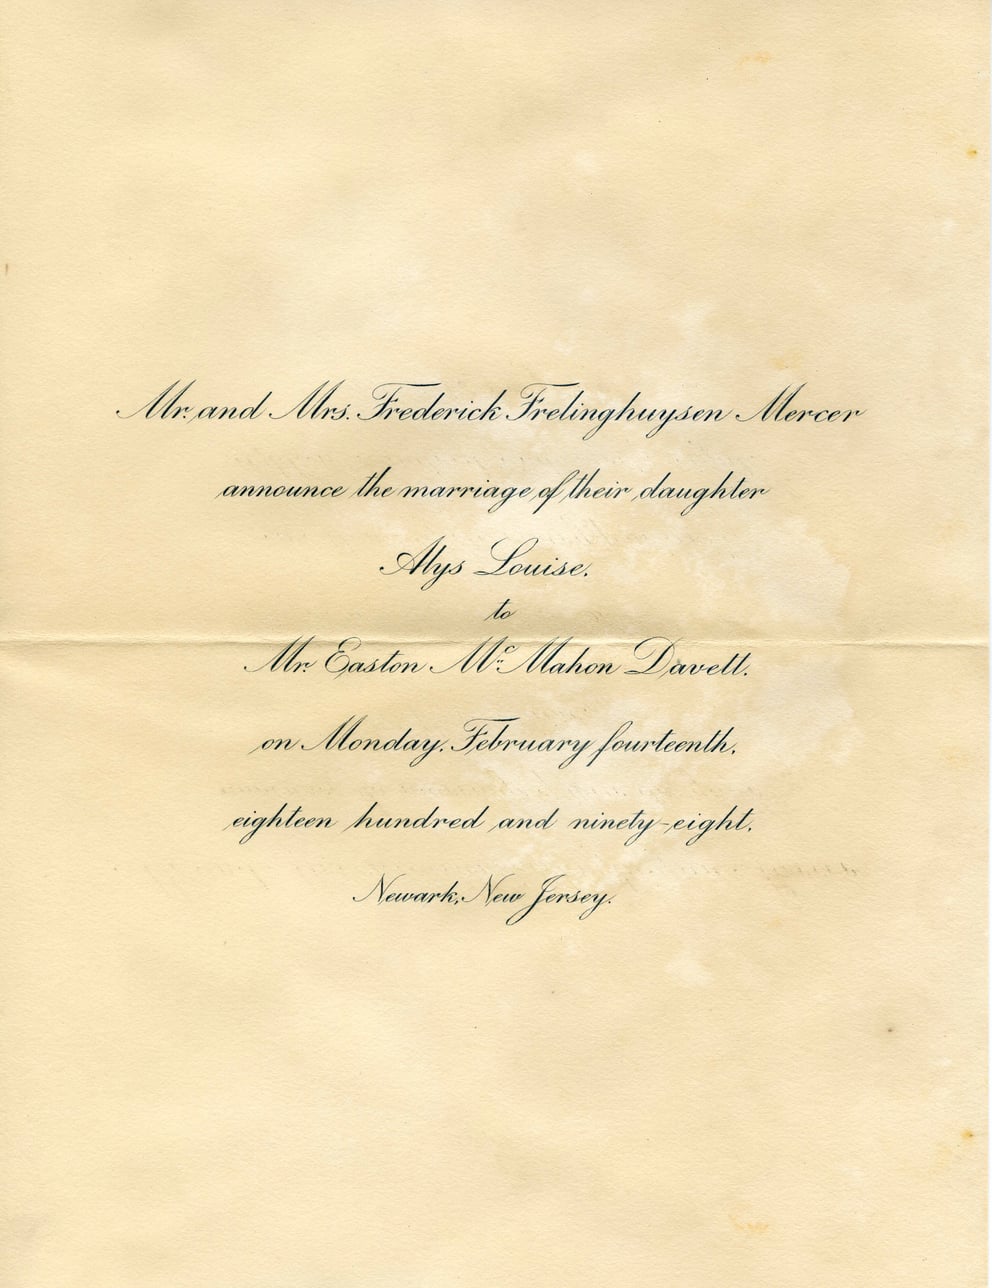 Mr. and Mrs. Frederick Frelinghuysen Mercer
announce the marriage of their daughter
Alys Louise,
to
Mr. Easton Mc Mahon Davell,
on Monday, February fourteenth,
eighteen hundred and ninety-eight,
Newark, New Jersey.